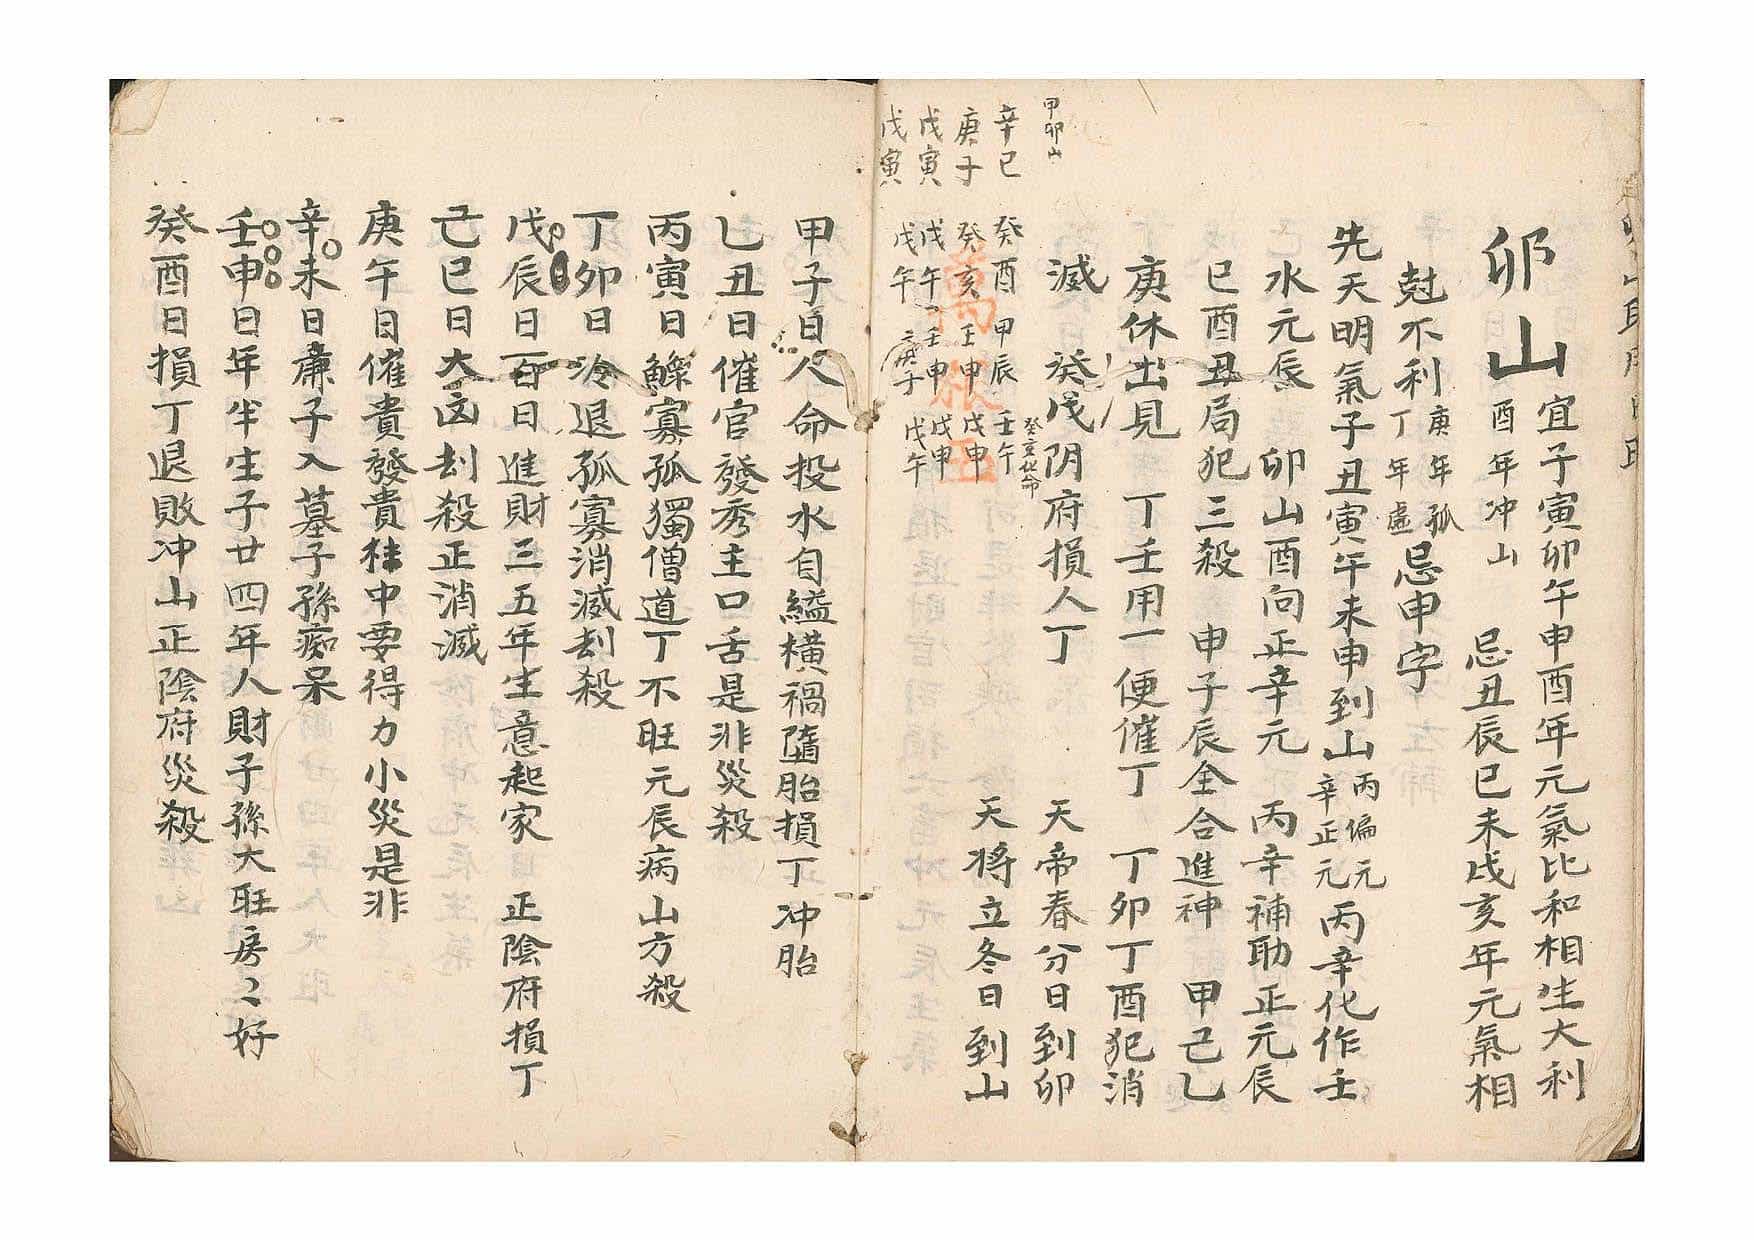 卯山
宜子寅卯午申酉年元氣比和相生大利
酉年冲山
忌丑辰巳未戌亥年元氣相
尅不利
庚年孤
丁年虛
忌申字
先天明氣子丑寅午未申到山
丙偏元
辛正元
丙辛化作壬
水元辰
卯山酉向正辛元
丙辛補助正元辰
巳酉丑局犯三殺
申子辰全合進神
甲己乙
庚休出見
丁壬用一便催丁
丁卯丁酉犯消
滅
癸戊阴府損人丁
天帝春分日到卯
天将立冬日到山
甲卯山
辛巳
癸酉
甲辰
壬午
癸亥化命
庚子
癸亥
壬申
戊申
戊寅
戊午
壬申
戊申
戊寅
戊午
庚子
戊午
甲子日人命投水自縊橫禍墮胎損丁冲胎
乙丑日催官發秀主口舌是非災殺
丙寅日鰥寡孤獨僧道丁不旺元辰病山方殺
丁卯日冷退孤寡消滅刦殺
戊辰日百日進財三五年生意起家
正陰府損丁
己巳日大凶刦殺正消滅
庚午日催貴發貴科中要得力小災是非
辛未日廉子入墓子孫痴呆
壬申日年半生子廿四年人財子孫大旺房々好
癸酉日損丁退敗冲山正陰府災殺